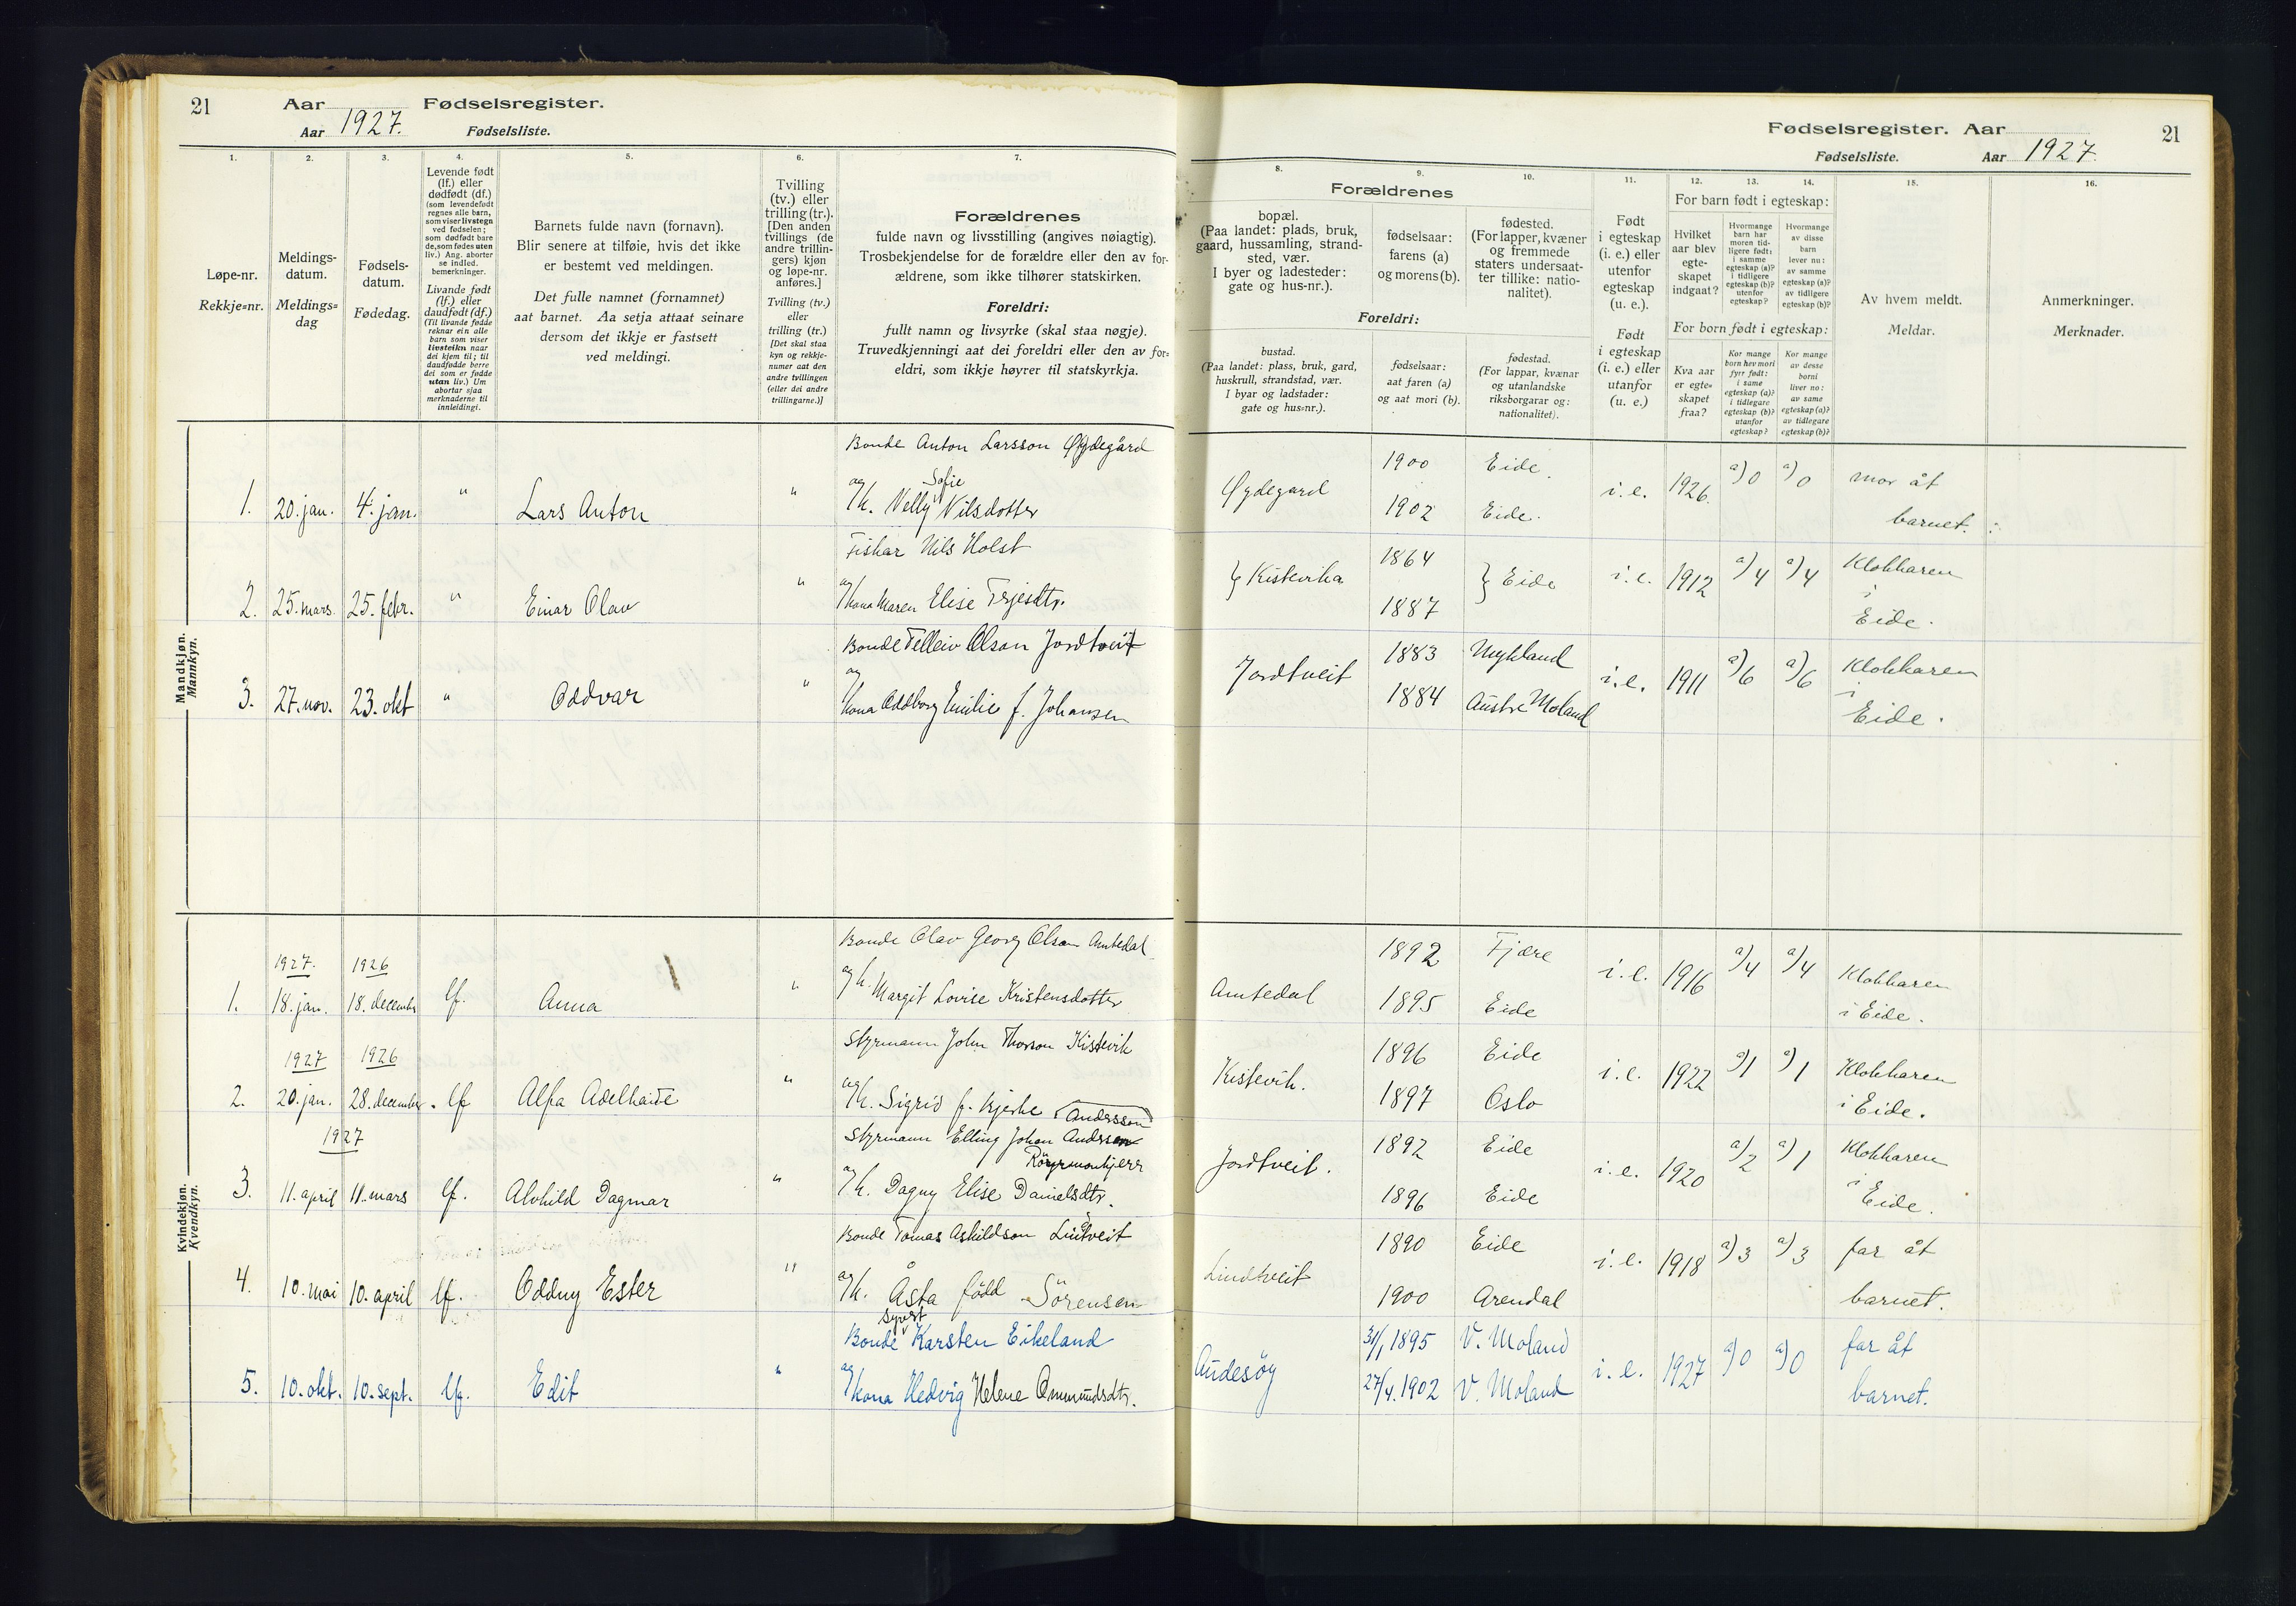 21
Aar
Fødselsregister.
Aar 1927.
Fødselsliste.
1.
2.
3.
4.
5.
6.
7.
Løpe-nr.
Rekkje=nr.
Meldings-
datum.
Meldings=
dag
Fødsels-
datum.
Fødedag.
Levende født
(lf.) eller
dødfødt (df.)
(som levendefødt
regnes alle barn,
som viser livstegn
ved fødselen;
som dødfødt bare
de, som fødes uten
liv.) Ang. aborter
se indled.
bemerkninger.
Livande født
(lf.) eller
daudfødt (df.)
(Til livande fødde
reknar ein alle
barn som viser
livsteikn naar
dei kjem til; til
daudfødde berre
dei som er fødde
utan liv.) Um
abortar sjaa
merknaderne til
innleidingi.
Barnets fulde navn (fornavn).
Blir senere at tilføie, hvis det ikke
er bestemt ved meldingen.
Det fulle namnet (fornamnet)
aat barnet. Aa setja attaat seinare
dersom det ikkje er fastsett
ved meldingi.
Tvilling
(tv.) eller
trilling (tr.).
[Den anden
tvillings (de
andre trillin-
gers) kjøn
og løpe-nr.
anføres.]
Tvilling (tv.)
eller
trilling (tr.)
[Det skal staa
kyn og rekkje-
numer aat den
andre tvillingen
(eller dei andre
trillingarne.)]
Forældrenes
fulde navn og livsstilling (angives nøiagtig).
Trosbekjendelse for de forældre eller den av for-
ældrene, som ikke tilhører statskirken.
Foreldri:
fullt namn og livsyrke (skal staa nøgje).
Truvedkjenningi aat dei foreldri eller den av for=
eldri, som ikkje høyrer til statskyrkja.
Mandkjøn.
Mannkyn.
Bonde Anton Larsson Øydegård
Sofie
1. 20. jan. 4. jan. " Lars Anton " og k. Nelly Nilsdotter
Fiskar Nils Holst
2. 25. mars. 25. febr. " Einar Olav " og kona Maren Elise Terjesdtr.
Bonde Telleiv Olson Jordtveit
3. 27. nov. 23. okt " Oddvar " og kona Oddborg Emilie f. Johansen
Kvindekjøn.
Kvendkyn.
Bonde Olav Georg Olson Amtedal
1927. 1926
1. 18. jan. 18. december lf. Anna " og k. Margit Lovise Kristensdotter
Styrmann John Thorson Kistevik
1927 1926
2. 20. jan. 28. december. lf Alfa Adelhaide " og k. Sigrid f. Kjerke
Anderssen
Styrmann Elling Johan Anderssen
1927
3. 11. april 11. mars lf. Alvhild Dagmar " og k. Dagny Elise Danielsdtr.
Bonde Tomas Askildson Lindtveit
4. 10. mai 10. april lf. Oddny Ester " og k. Åsta född Sörensen
Syvert
Bonde Karsten Eikeland
5. 10. okt. 10. sept. lf. Edit " og kona Hedvig Helene Ommundsdtr.
Fødselsregister. Aar
21
Fødselsliste.
Aar 1927.
8.
9.
10.
11.
12.
13.
14.
15.
16.
Forældrenes
bopæl.
(Paa landet: plads, bruk,
gaard, hussamling, strand-
sted, vær.
I byer og ladesteder:
gate og hus-nr.).
Foreldri:
bustad.
(Paa landet: plass, bruk, gard,
huskrull, strandstad, vær.
I byar og ladstader:
gate og hus=nr.).
fødselsaar:
farens (a)
og morens (b).
fødselsaar:
aat faren (a)
og aat mori (b).
fødested.
(For lapper, kvæner
og fremmede
staters undersaat-
ter tillike: natio-
nalitet).
fødestad.
(For lappar, kvænar
og utanlandske
riksborgarar og:
nationalitet).
Født
i egteskap
(i. e.) eller
utenfor
egteskap
(u. e.).
Født
i egteskap
(i. e.) eller
utanfor
(u. e.)
For barn født i egteskap:
Hvilket
aar blev
egte-
skapet
indgaat?
Hvormange
barn har
moren tid-
ligere født:
i samme
egteskap (a)?
i tidligere
egteskap (b)?
utenfor
egteskap?
Hvormange
av disse
barn
lever nu:
av samme
egteskap (a)?
av tidligere
egteskap (b)?
For born født i egteskap:
Kva aar
er egte=
skapet
fraa?
Kor mange
born hev mori
fyrr født:
i same
egteskap (a)?
i tidlegare
egteskap (b)?
utanfor
egteskap?
Kor mange
av desse
borni
liver no:
av same
egteskap (a)?
av tidlegare
egteskap (b)?
Av hvem meldt.
Meldar.
Anmerkninger.
Merknader.
1900 Eide.
Øydegard i. e. 1926. a) 0 a) 0 mor åt
1902 Eide. barnet.
1864
} Kistevika } Eide i. e. 1912 a) 4 a) 4 Klokkaren
i
1887 Eide.
1883 Mykland
Jordtveit i. e. 1911 a) 6 a) 6 Klokkaren
i
1884 Austre Moland Eide.
1892 Fjære
Amtedal i. e. 1916 a) 4 a) 4 Klokkaren
1895 Eide i Eide.
1896 Eide
Kistevik. i. e. 1922 a) 1 a) 1 Klokkaren
1897 Oslo i Eide.
1892 Eide
Jordtveit. i. e. 1920 a) 2 a) 1 Klokkaren
i
1896 Eide Eide.
1890 Eide
Lindtveit i. e. 1918 a) 3 a) 3 far åt
1900 Arendal barnet.
31/1 1895 V. Moland
Audesöy i. e. 1927 a) 0 a) 0 far åt
27/4. 1902 V. Moland barnet.